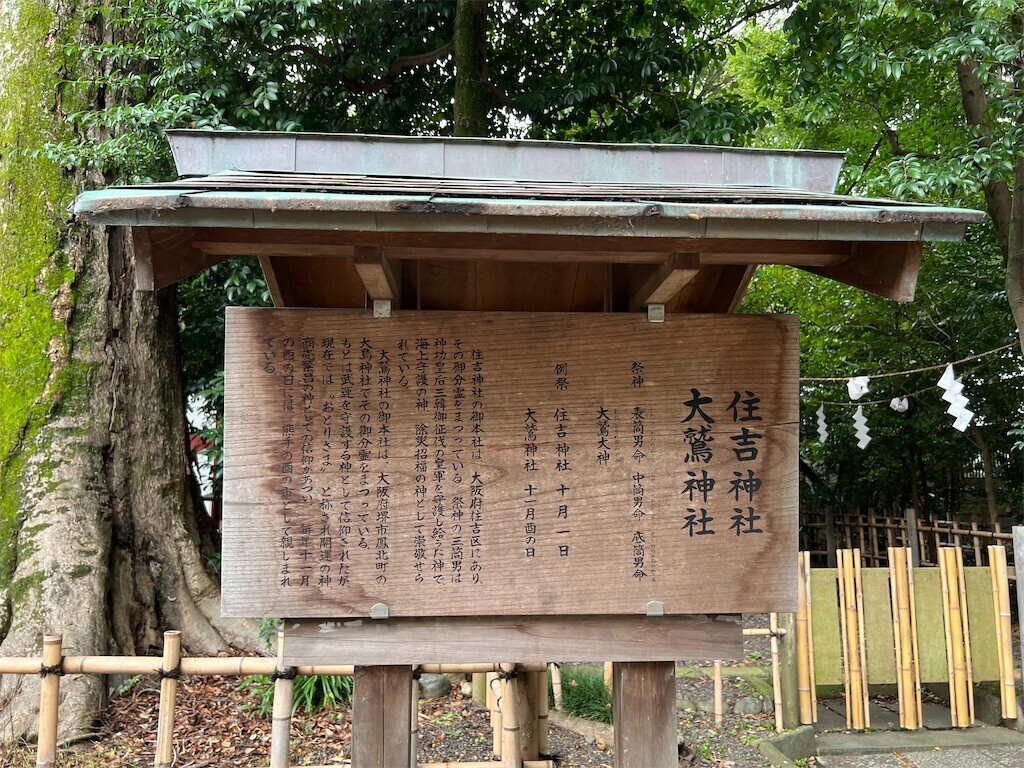 住吉神社
大鷲神社
祭神 表筒男命 中筒男命 底筒男命
大鷲大神
例祭 住吉神社 十月一日
大鷲神社 十一月酉の日
住吉神社の御本社は、大阪府住吉区にあり、
その御分霊をまつっている。祭神の三筒男は
神功皇后三韓御征伐の皇軍を守護し給うた神で、
海上守護の神 除災招福の神として崇敬せら
れている。
大鷲神社の御本社は、大阪府堺市鳳北町の
大鳥神社でその御分霊をまつっている。
もとは武運を守護する神として信仰されたが
現在では〝おとりさま〟と称され開運の神、
商売繁昌の神としての信仰があつい、毎年十一月
の酉の日には、熊手の酉の市として親しまれ
ている。